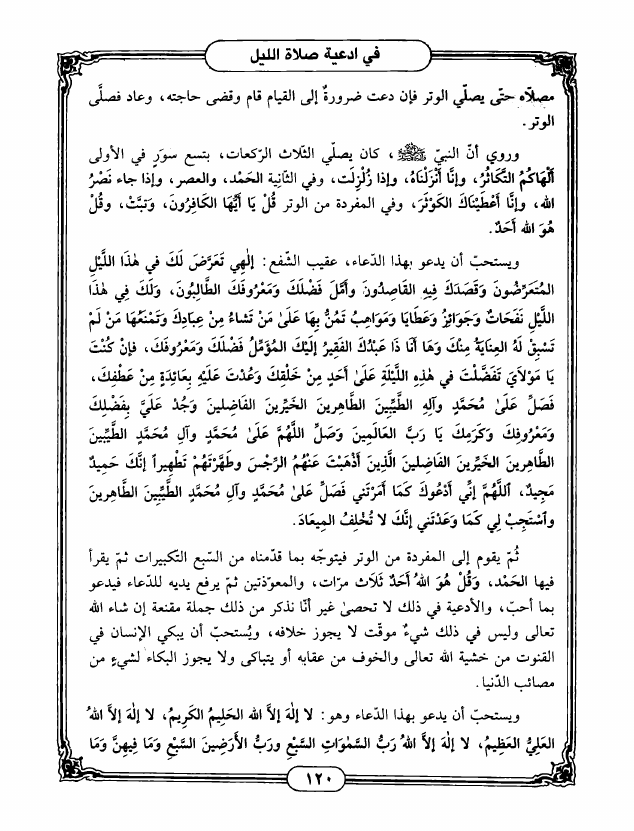 في ادعية صلاة الليل
مصلاّه حتّى يصلّي الوتر فإن دعت ضرورةٌ إلى القيام قام وقضى حاجته، وعاد فصلَّى
الوتر.
وروي أنّ النبيّ ﷺ، كان يصلّي الثّلاث الرّكعات، بتسع سورٍ في الأولى
أَلْهَاكُمُ التَّكَاثُرُ، وإِنَّا أَنْزَلْنَاهُ، وإذا زُلْزِلَت، وفي الثّانية الحَمْد، والعصر، وإذا جاء نَصْرُ
الله، وإنَّا أَعْطَيْنَاكَ الكَوْثَرَ، وفي المفردة من الوتر قُلْ يَا أَيُّهَا الكَافِرُونَ، وَتبَّتْ، وقُلْ
هُوَ الله أَحَدٌ.
ويستحبّ أن يدعو بهذا الدّعاء، عقيب الشّفع: إِلٰهِي تَعَرَّضَ لَكَ في هٰذَا اللَّيْلِ
المُتَعَرِّضُونَ وَقَصَدَكَ فِيهِ القَاصِدُونَ وأَمَّلَ فَضْلَكَ وَمَعْرُوفَكَ الطَّالِبُونَ، وَلَكَ فِي هٰذَا
اللَّيْلِ نَفَحَاتٌ وَجَوَائِزُ وَعَطَايَا وَمَوَاهِبُ تَمُنُّ بِهَا عَلَىٰ مَنْ تَشَاءُ مِنْ عِبَادِكَ وَتَمْنَعُهَا مَنْ لَمْ
تَسْبِقْ لَهُ العِنَايَةُ مِنْكَ وَهَا أَنَا ذَا عَبْدُكَ الفَقِيرُ إِلَيْكَ المُؤَمِّلُ فَضْلَكَ وَمَعْرُوفَكَ، فَإِنْ كُنْتَ
يَا مَوْلاَيَ تَفَضَّلْتَ في هٰذِهِ اللَّيْلَةِ عَلَىٰ أَحَدٍ مِنْ خَلْقِكَ وَعُدْتَ عَلَيْهِ بِعَائِدَةٍ مِنْ عَطْفِكَ،
فَصَلِّ عَلَىٰ مُحَمَّدٍ وَآلِهِ الطَّيِّبِينَ الطَّاهِرِينَ الخَيِّرِينَ الفَاضِلِينَ وَجُدْ عَلَيَّ بِفَضْلِكَ
وَمَعْرُوفِكَ وَكَرَمِكَ يَا رَبَّ العَالَمِينَ وَصَلِّ اللَّهُمَّ عَلَىٰ مُحَمَّدٍ وآلِ مُحَمَّدٍ الطَّيِّبِينَ
الطَّاهِرِينَ الخَيِّرِينَ الفَاضِلِينَ الَّذِينَ أَذْهَبْتَ عَنْهُمُ الرِّجْسَ وَطَهَّرْتَهُمْ تَطْهِيراً إِنَّكَ حَمِيدٌ
مَجِيدٌ، اَللَّهُمَّ إِنِّي أَدْعُوكَ كَمَا أَمَرْتَني فَصَلِّ عَلىٰ مُحَمَّدٍ وآلِ مُحَمَّدٍ الطَّيِّبِينَ الطَّاهِرِينَ
وٱسْتَجِبْ لِي كَمَا وَعَدْتَني إِنَّكَ لاَ تُخْلِفُ المِيعَادَ.
ثُمّ يقوم إلى المفردة من الوتر فيتوجّه بما قدّمناه من السّبع التّكبيرات ثمّ يقرأ
فيها الحَمْد، وَقُلْ هُوَ اللهُ أَحَدٌ ثَلاثَ مرّات، والمعوّذتين ثمّ يرفع يديه للدّعاء فيدعو
بما أحبّ، والأدعية في ذلك لا تحصىٰ غير أنّا نذكر من ذلك جملة مقنعة إن شاء الله
تعالى وليس في ذلك شيءٌ موقّت لا يجوز خلافه، ويُستحبّ أن يبكي الإنسان في
القنوت من خشية الله تعالى والخوف من عقابه أو يتباكى ولا يجوز البكاء لشيءٍ من
مصائب الدّنيا.
ويستحبّ أن يدعو بهذا الدّعاء وهو: لا إِلٰهَ إلاَّ الله الحَلِيمُ الكَرِيمُ، لا إِلٰهَ إلاَّ اللهُ
العَلِيُّ العَظِيمُ، لا إِلٰهَ إلاَّ اللهُ رَبُّ السَّمٰوَاتِ السَّبْعِ ورَبُّ الأَرَضِينَ السَّبْعِ وَمَا فِيهِنَّ وَمَا
١٢٠